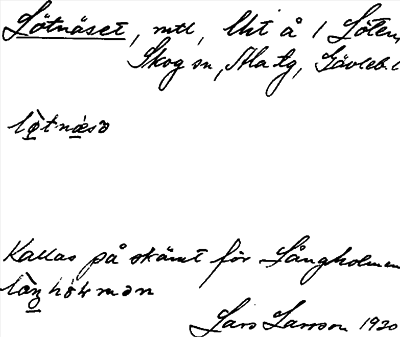 Lötnäset, mtl, Utt å i Löten,
Skog sn, Ala tg, Gävleb. l
lø̀tnæsə
Kallas på skämt för Långholmen
lòŋhólmən
Lars Larsson 1930